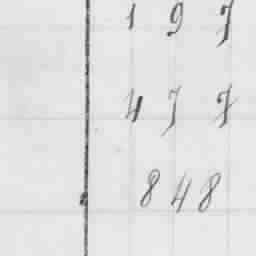 1 9 7
4 7 7
848